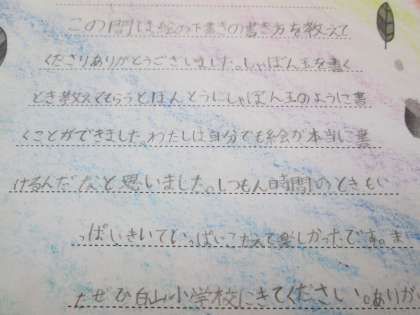 この間は絵の下書きの書き方を教えて
くださりありがとうございました。しゃぼん玉を書く
とき教えてもらうとほんとうにしゃぼん玉のように書
くことができました。わたしは自分でも絵が本当に書
けるんだなと思いました。しつもん時間のときもい
っぱいきいていっぱいこたえて楽しかったです。ま
たぜひ白山小学校にきてください。ありが